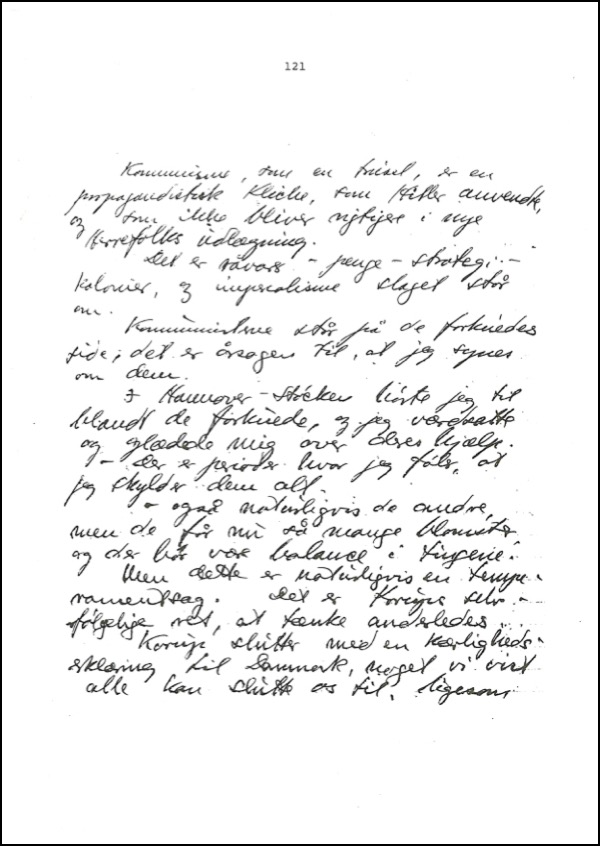 121
Kommunisme, som en trusel, er en
propagandistisk kliche, som Hitler anvendte,
og som ikke bliver rigtigere i nye
Herrefolks udlægning.
Det er råvare - penge - strategi -
kolonier, og imperialisme slaget står
om.
Kommunisterne står på de forknuedes
side, det er årsagen til, at jeg synes
om dem.
I Hannover-Stöcken hörte jeg til
blandt de forknuede, og jeg værdsatte
og glædede mig over deres hjælp.
- Der er perioder hvor jeg föler, at
jeg skylder dem alt.
- også natürligvis de andre,
men de får nu så mange blomster,
og der bör være balance i tingene.
Men dette er natürligvis en tempe-
ramentsag. Det er Korups selv-
fölgelige ret, at tænke anderledes...
Korup slutter med en kærligheds-
erklæring til Danmark, noget vi vist
alle kan slutte os til, ligesom